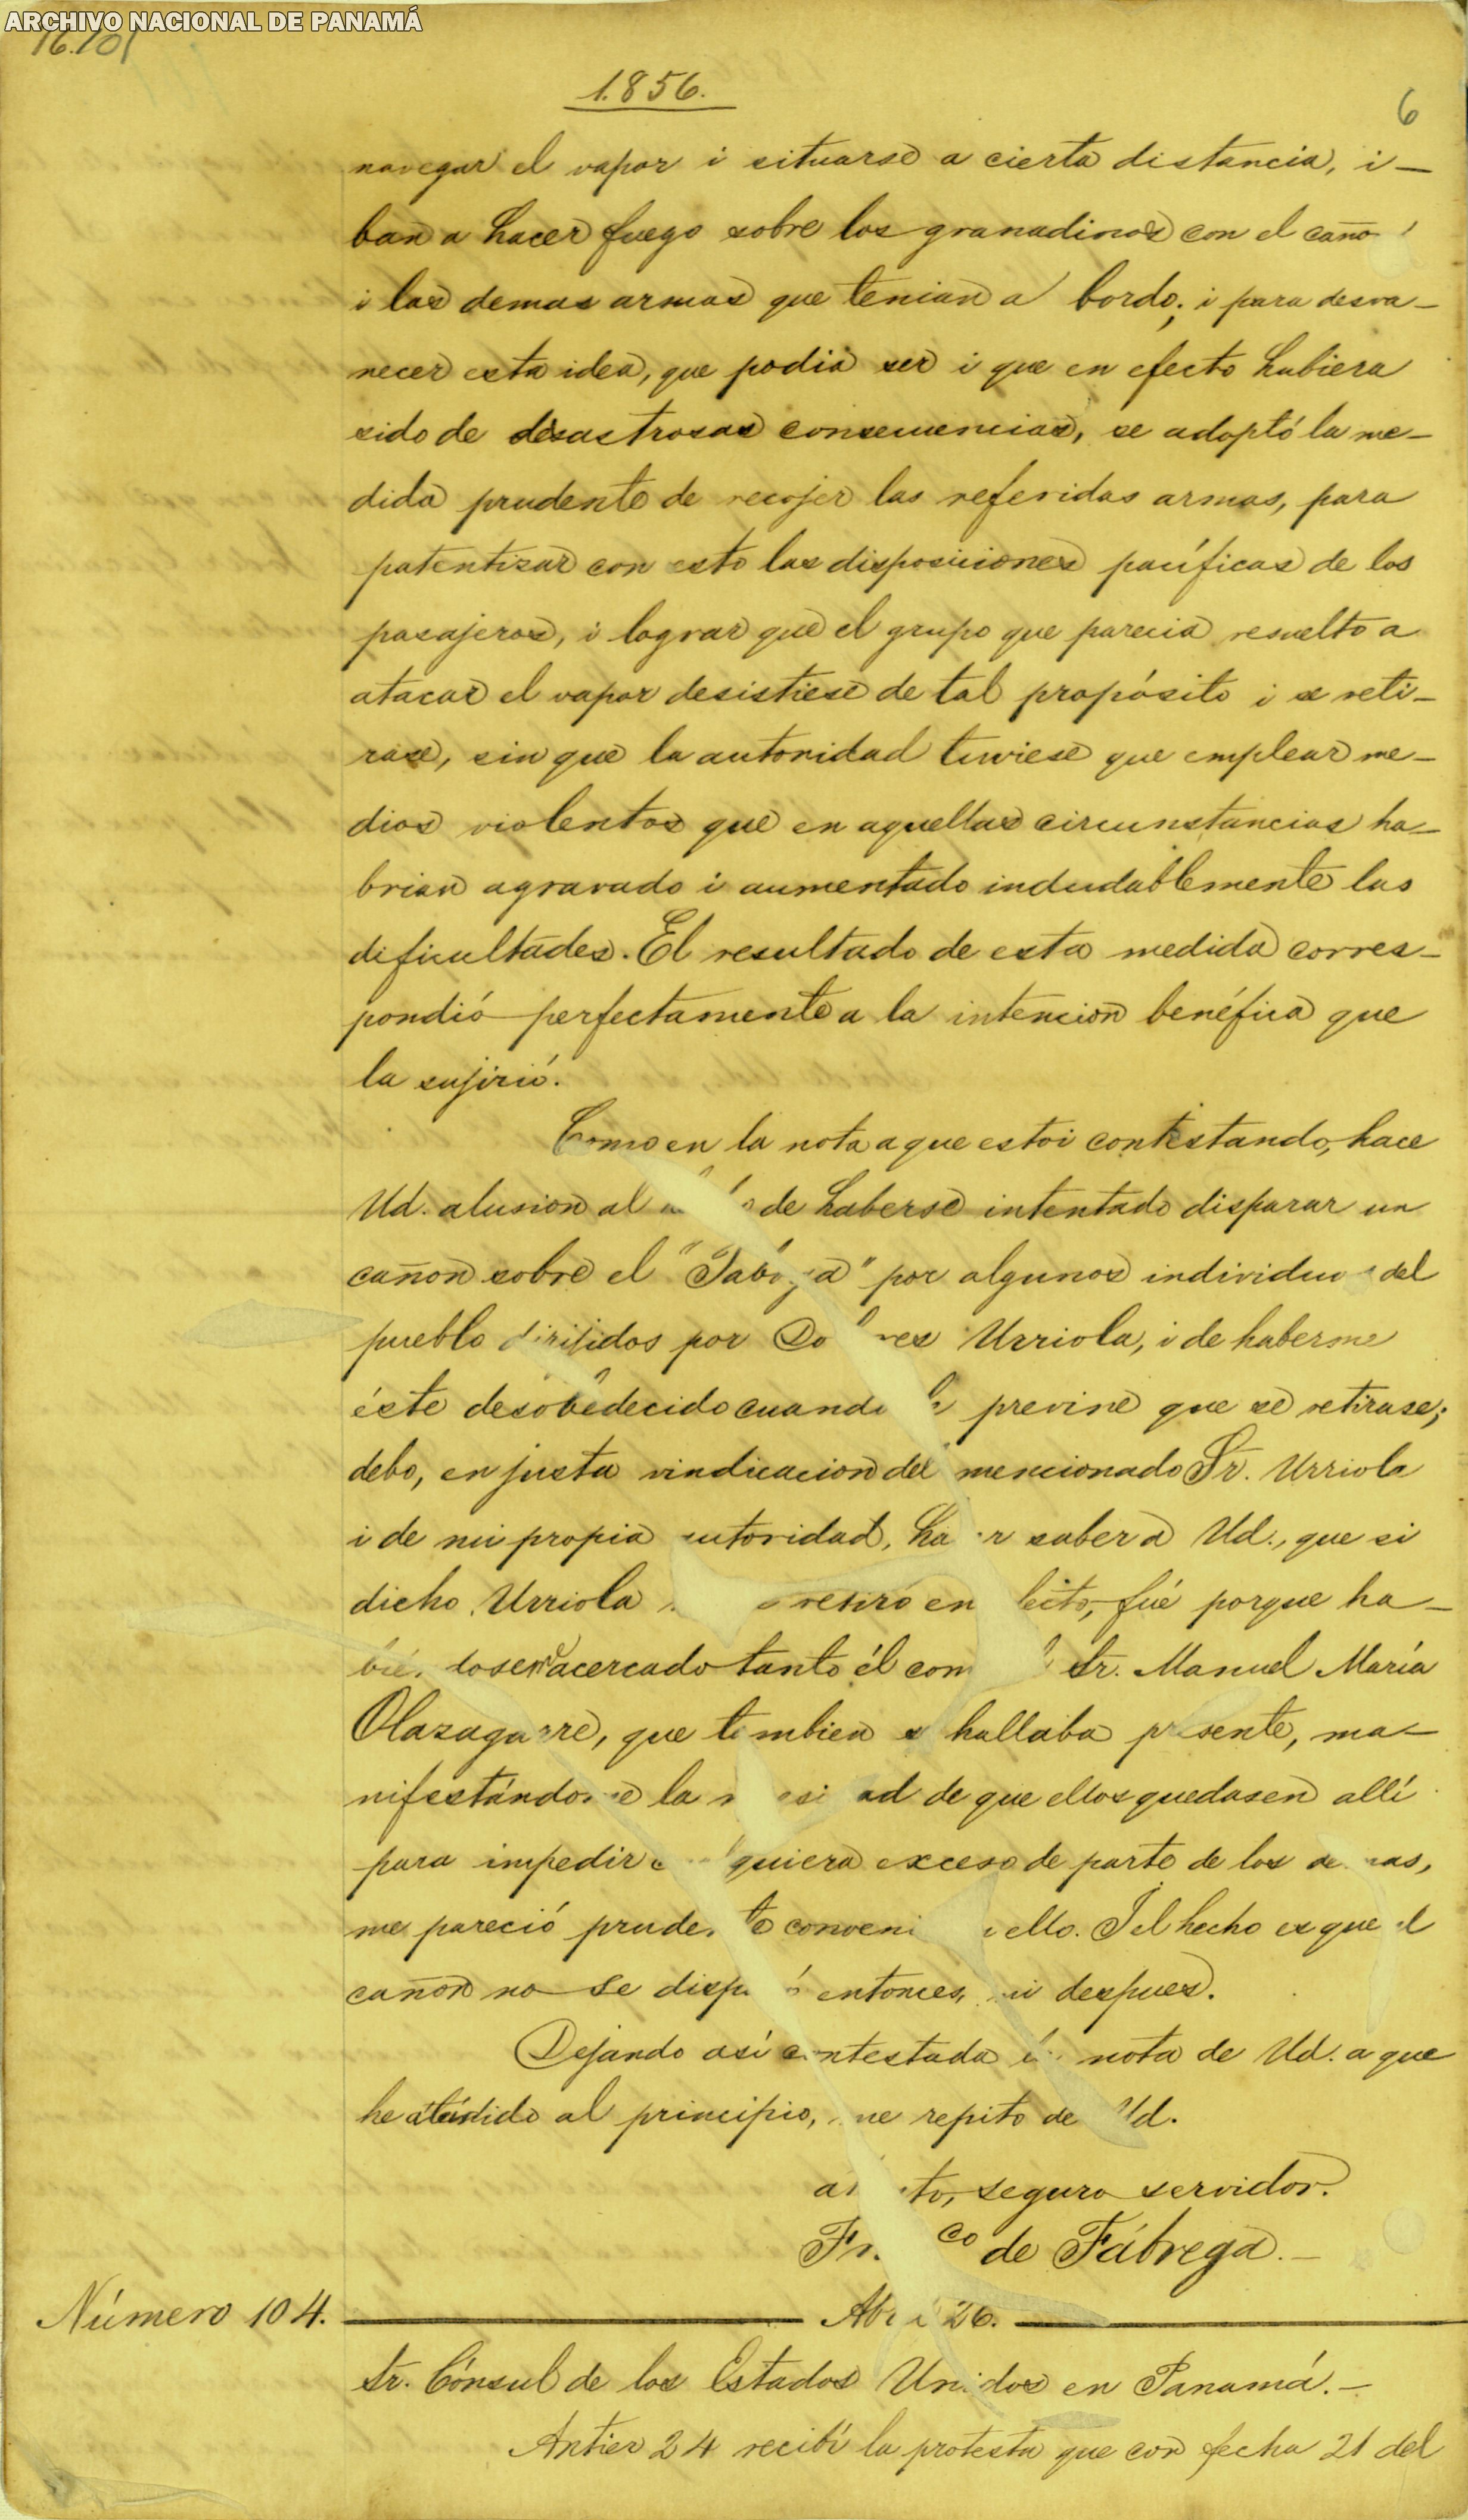 ARCHIVO NACIONAL DE PANAMÁ
1.856.
6
navegar el vapor i situarse a cierta distancia, i—
ban a hacer fuego sobre los granadinos con el caño
i las demas armas que tenian a bordo; i para desva—
necer esta idea, que podia ser i que en efecto hubiera
sido de desastrosas consecuencias, se adoptó la me—
dida prudente de recojer las referidas armas, para
patentizar con esto las disposiciones pacíficas de los
pasajeros, i lograr que el grupo que parecia resuelto a
atacar el vapor desistiese de tal propósito i se reti—
rase, sin que la autoridad tuviese que emplear me—
dios violentos que en aquellas circunstancias ha—
brian agravado i aumentado indudablemente las
dificultades. El resultado de esta medida corres—
pondió perfectamente a la intencion benéfica que
la sujirió.
Como en la nota a que estoi contestando, hace
Ud. alusion al de haberse intentado disparar un
cañon sobre el "Taboga" por algunos individuos del
pueblo dirijidos por Dolores Urriola, i de haberme
éste desobedecido cuando le previne que se retirase;
debo, en justa vindicacion del mencionado Sr. Urriola
i de mi propia autoridad, hacer saber a Ud., que si
dicho Urriola retiró en efecto, fué porque ha—
biéndoseme acercado tanto él como el Sr. Manuel María
Olazagarre, que tambien se hallaba presente, ma—
nifestándome la necesidad de que ellos quedasen allí
para impedir cualquiera exceso de parte de los demas,
me pareció prudente convenir en ello. I el hecho es que el
cañon no se disparó entonces, ni despues.
Dejando así contestada la nota de Ud. a que
he aludido al principio, me repito de Ud.
atento, seguro servidor.
Fr. co de Fábrega.—
Número 104. Abril 26.
Sr. Cónsul de los Estados Unidos en Panamá.—
Antier 24 recibí la protesta que con fecha 21 del